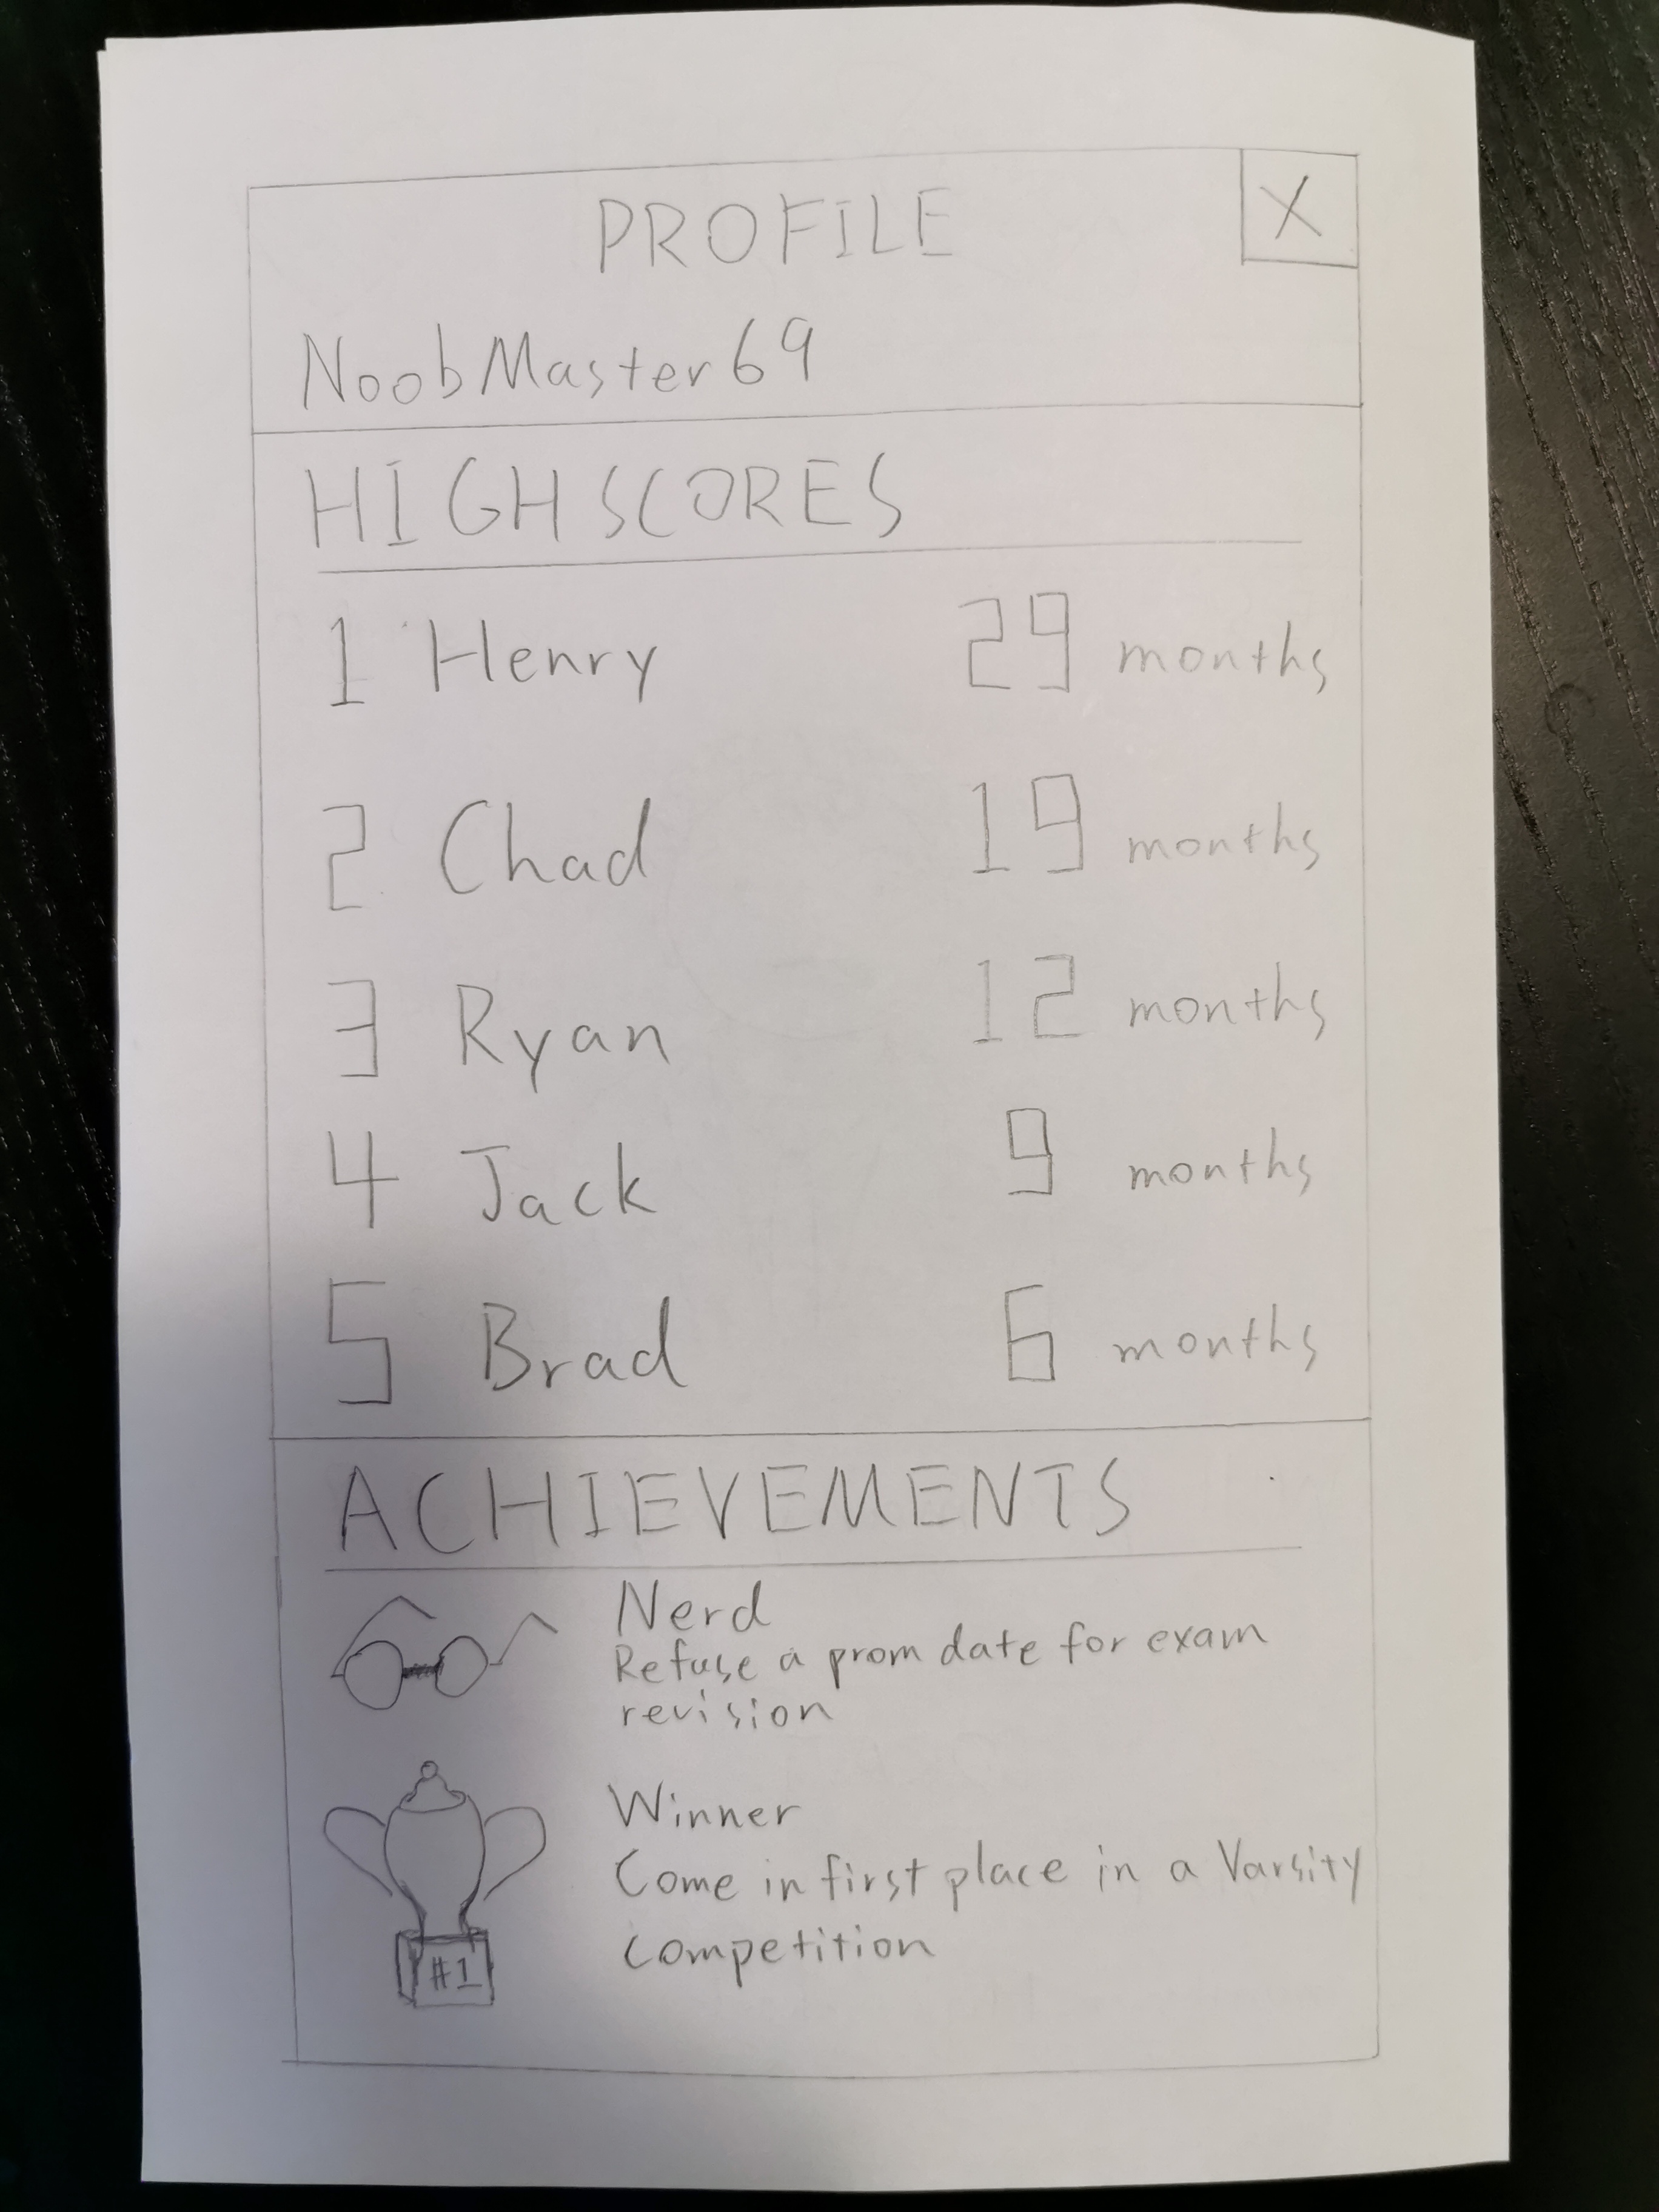 PROFILE
X
NoobMaster69
HIGHSCORES
1 Henry 29 months
2 Chad 19 months
3 Ryan 12 months
4 Jack 9 months
5 Brad 6 months
ACHIEVEMENTS
Nerd
Refuse a prom date for exam
revision
Winner
Come in first place in a Varsity
competition
#1